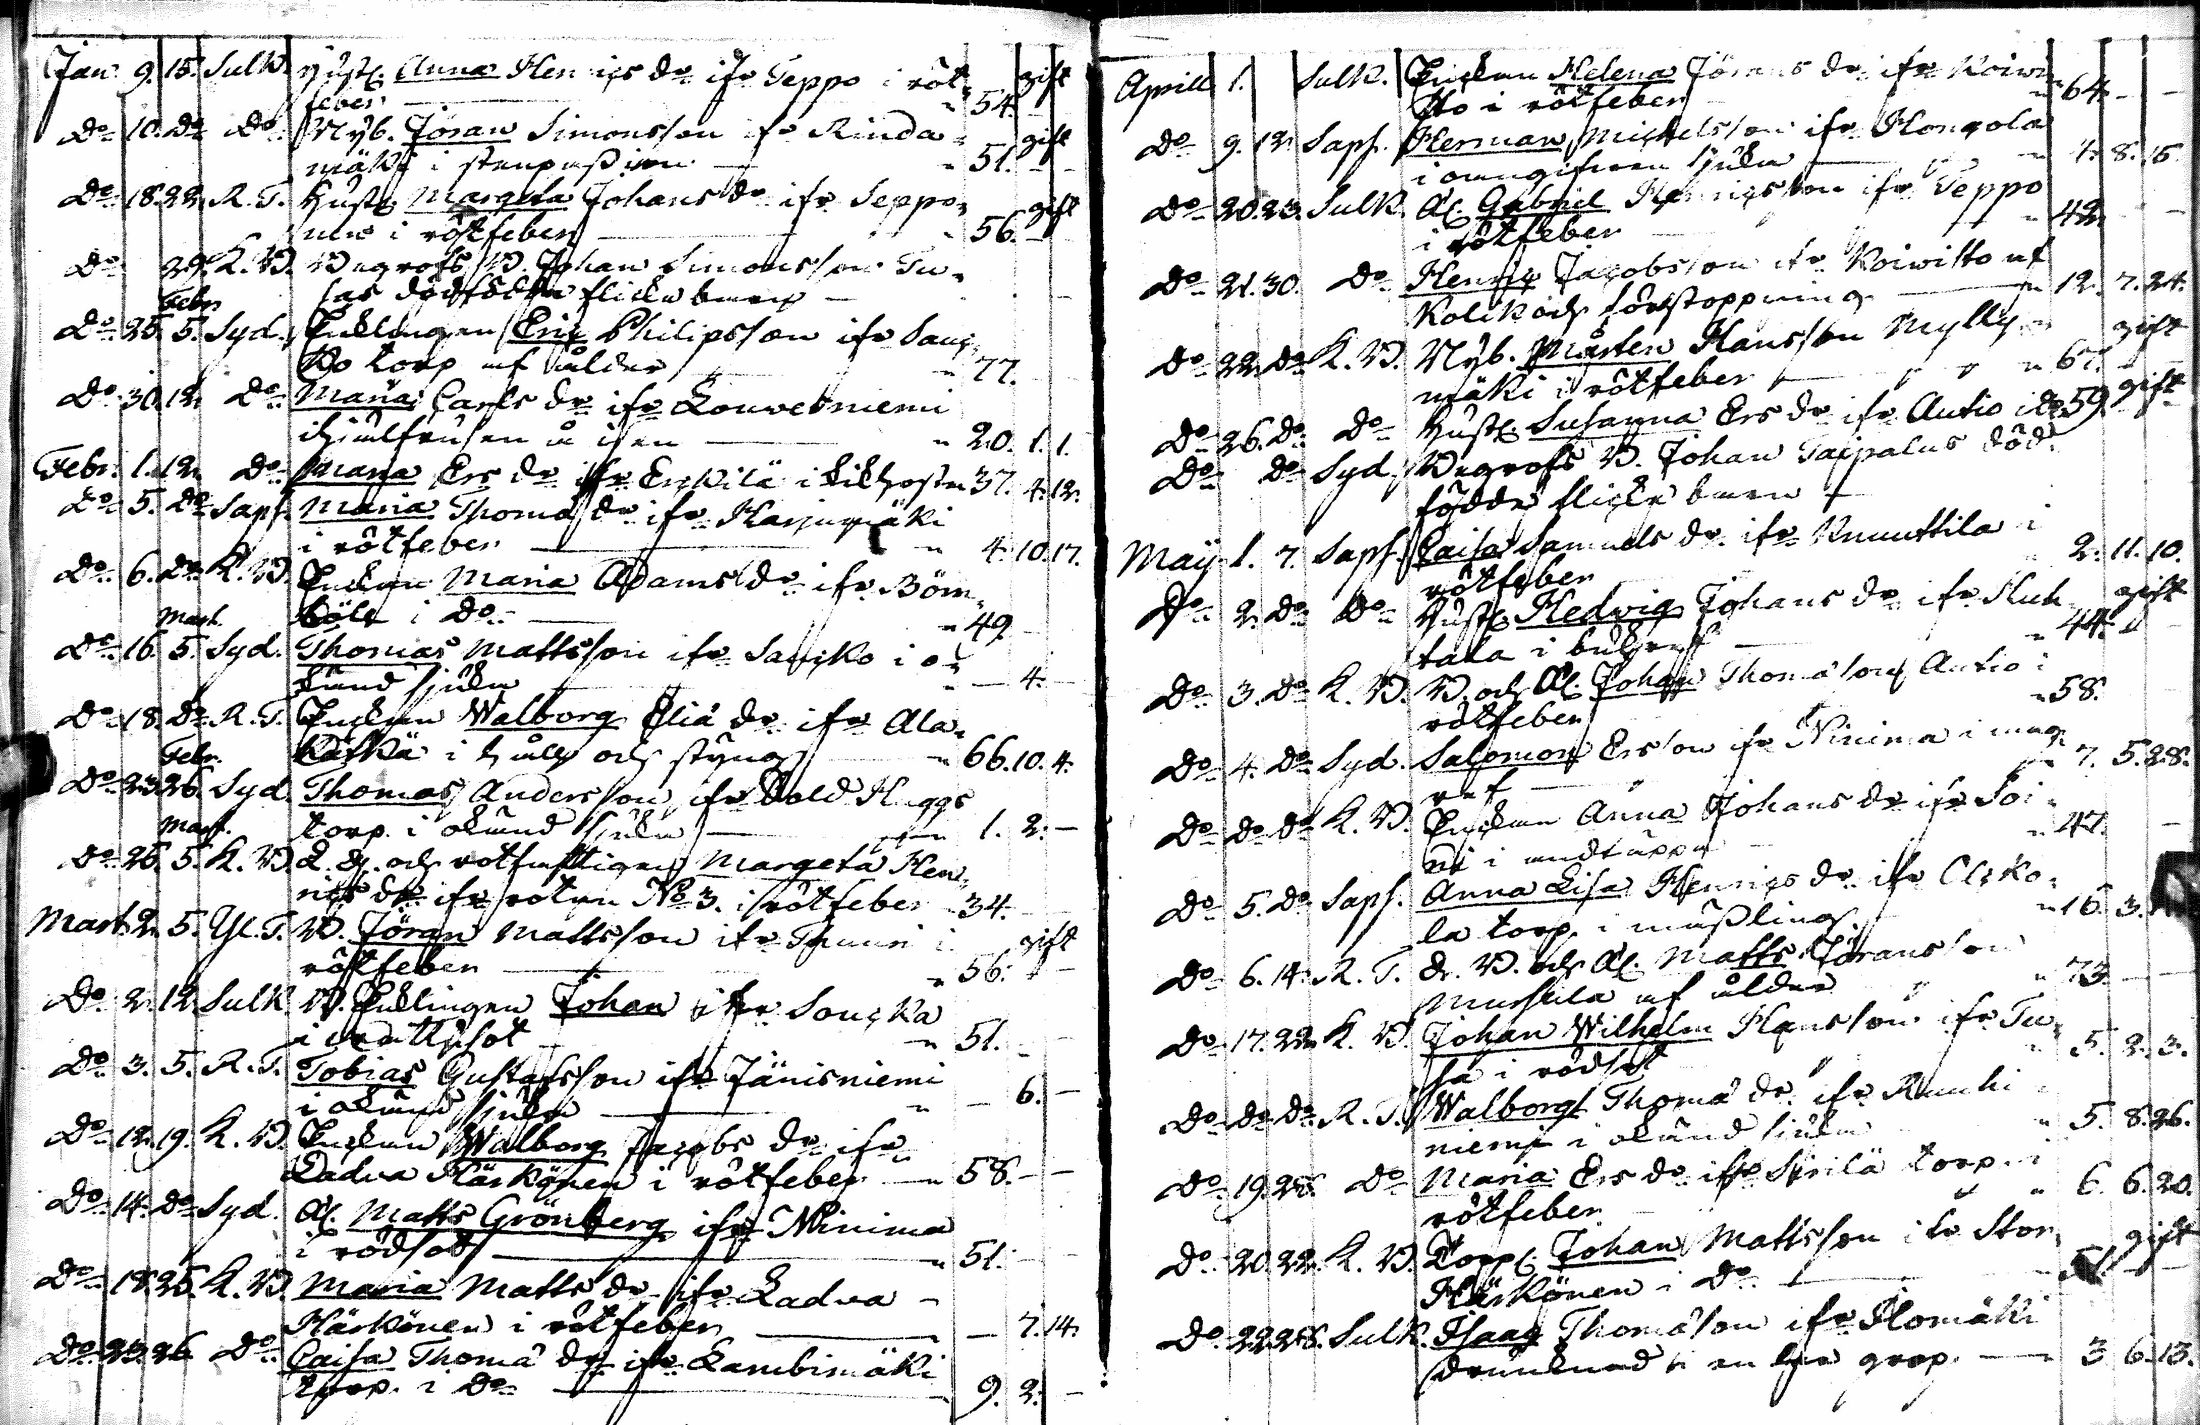 Jan. 9. 15. Sulk. Hust. Anna Henrics dr ifr Seppo i röt- gift
feber 54.
Do 10. Do Do Nyb. Jöran Simonsson ifr Rinda- gift
mäki i 51.
Do 18. 22. R. T. Hust. Margeta Johans dr ifr Seppo- gift
nen i rötfeber 56.
Do 29. K. W. Johan Simonsson Tu-
sas dödfödda flicka barn
Febr.
Do 25. 5. Syd. Enklingen Eric Philipsson ifr
torp af ålder 77.
Do 30. 12. Do Maria Carls dr ifr Louwetniemi
ihjälfrusen å isen 20. 1. 1.
Febr. 1. 12. Do Maria Ers dr ifr Erkilä i kikhosta 37. 4. 12.
Do 5. Do Saps. Maria Thomæ dr ifr Harjumäki
i rötfeber 4. 10. 17.
Do 6. Do K. W. Enkan Maria Adams dr ifr Böm-
böle i Do 49
Mart.
Do 16. 5. Syd. Thomas Mattsson ifr i o-
känd sjukd. 4.
Do 18. Do R. T. Enkan Walborg Eliæ dr ifr Ala-
i håll och styng 66. 10. 4.
Febr.
Do 23. 26. Syd. Thomas Andersson ifr
torp. i okänd sjukd. 1. 2.
Mart.
Do 26. 5. K. W. och Margeta Hen-
rics dr ifr roten No 3. i rötfeber 34.
Mart. 2. 5. Yl. T. W. Jöran Mattsson ifr Thuuri i gift
rötfeber 56.
Do 2. 12. Sulk. W. Enklingen Johan ifr Souka
i 51.
Do 3. 5. R. T. Tobias Gustafsson ifr Jänisniemi
i okänd sjukd. 6.
Do 12. 19. K. W. Enkan Walborg Jacobs dr ifr
Ladva Härkönen i rötfeber 58.
Do 14. Do Syd. Matts Grönberg ifr Niinima
i rödsot 51.
Do 18. 25. K. W. Maria Matts dr ifr Ladva
Härkönen i rötfeber 7. 14.
Do 23. 26. Do Caisa Thomæ dr ifr Lambimäki
torp. i Do 9. 2.
Aprill 1. Sulk. Enkan Helena Jörans dr ifr Koiwi-
sto i rötfeber 64.
Do 9. 12. Saps. Herman Michelsson ifr Hongola
i sjukd. 4. 8. 15.
Do 20. 23. Sulk. Gabriel Henricsson ifr Seppo
i rötfeber 42.
Do 21. 30. Do Henric Jacobsson ifr Koiwisto af
kolik och förstoppning 12. 7. 24.
Do 22. Do K. W. Nyb. Mårten Hansson Mylly- gift
mäki i rötfeber 67.
Do 26. Do Do Hust. Susanna Ers dr ifr Autio i Do 59 gift
Do Do Syd. W. Johan Taipalus död-
födda flicka barn
May 1. 7. Saps. Caisa Samuels dr ifr Knuuttila i
rötfeber 2. 11. 10.
Do 2. Do Do Hust. Hedvig Johans dr ifr Huh- gift
tala i bukref 44.
Do 3. Do K. W. W. och Johan Thomæson Autio i
rötfeber 58.
Do 4. Do Syd. Salomon Ersson ifr Niinima i mag-
ref 7. 5. 28.
Do Do Do K. W. Enkan Anna Johans dr ifr Soi-
ni i andtäppa 47.
Do 5. Do Saps. Anna Lisa Henrics dr ifr
la torp. i mässling 16. 3.
Do 6. 14. R. T. W. och Matts Jöransson
af ålder 73.
Do 17. 22. K. W. Johan Wilhelm Hansson ifr Tu-
sa i rödsot 5. 2. 3.
Do Do Do R. T. Walborg Thomæ dr ifr
niemi i okänd sjukd. 5. 8. 26.
Do 19. 28. Do Maria Ers dr ifr torp. i
rötfeber 6. 6. 20.
Do 20. 22. K. W. Torp. Johan Mattsson ifr Stor gift
Härkönen i Do 51.
Do 22. 28. Sulk. Isaac Thomæson ifr Homäki
drunknad i en grop. 3 6. 13.